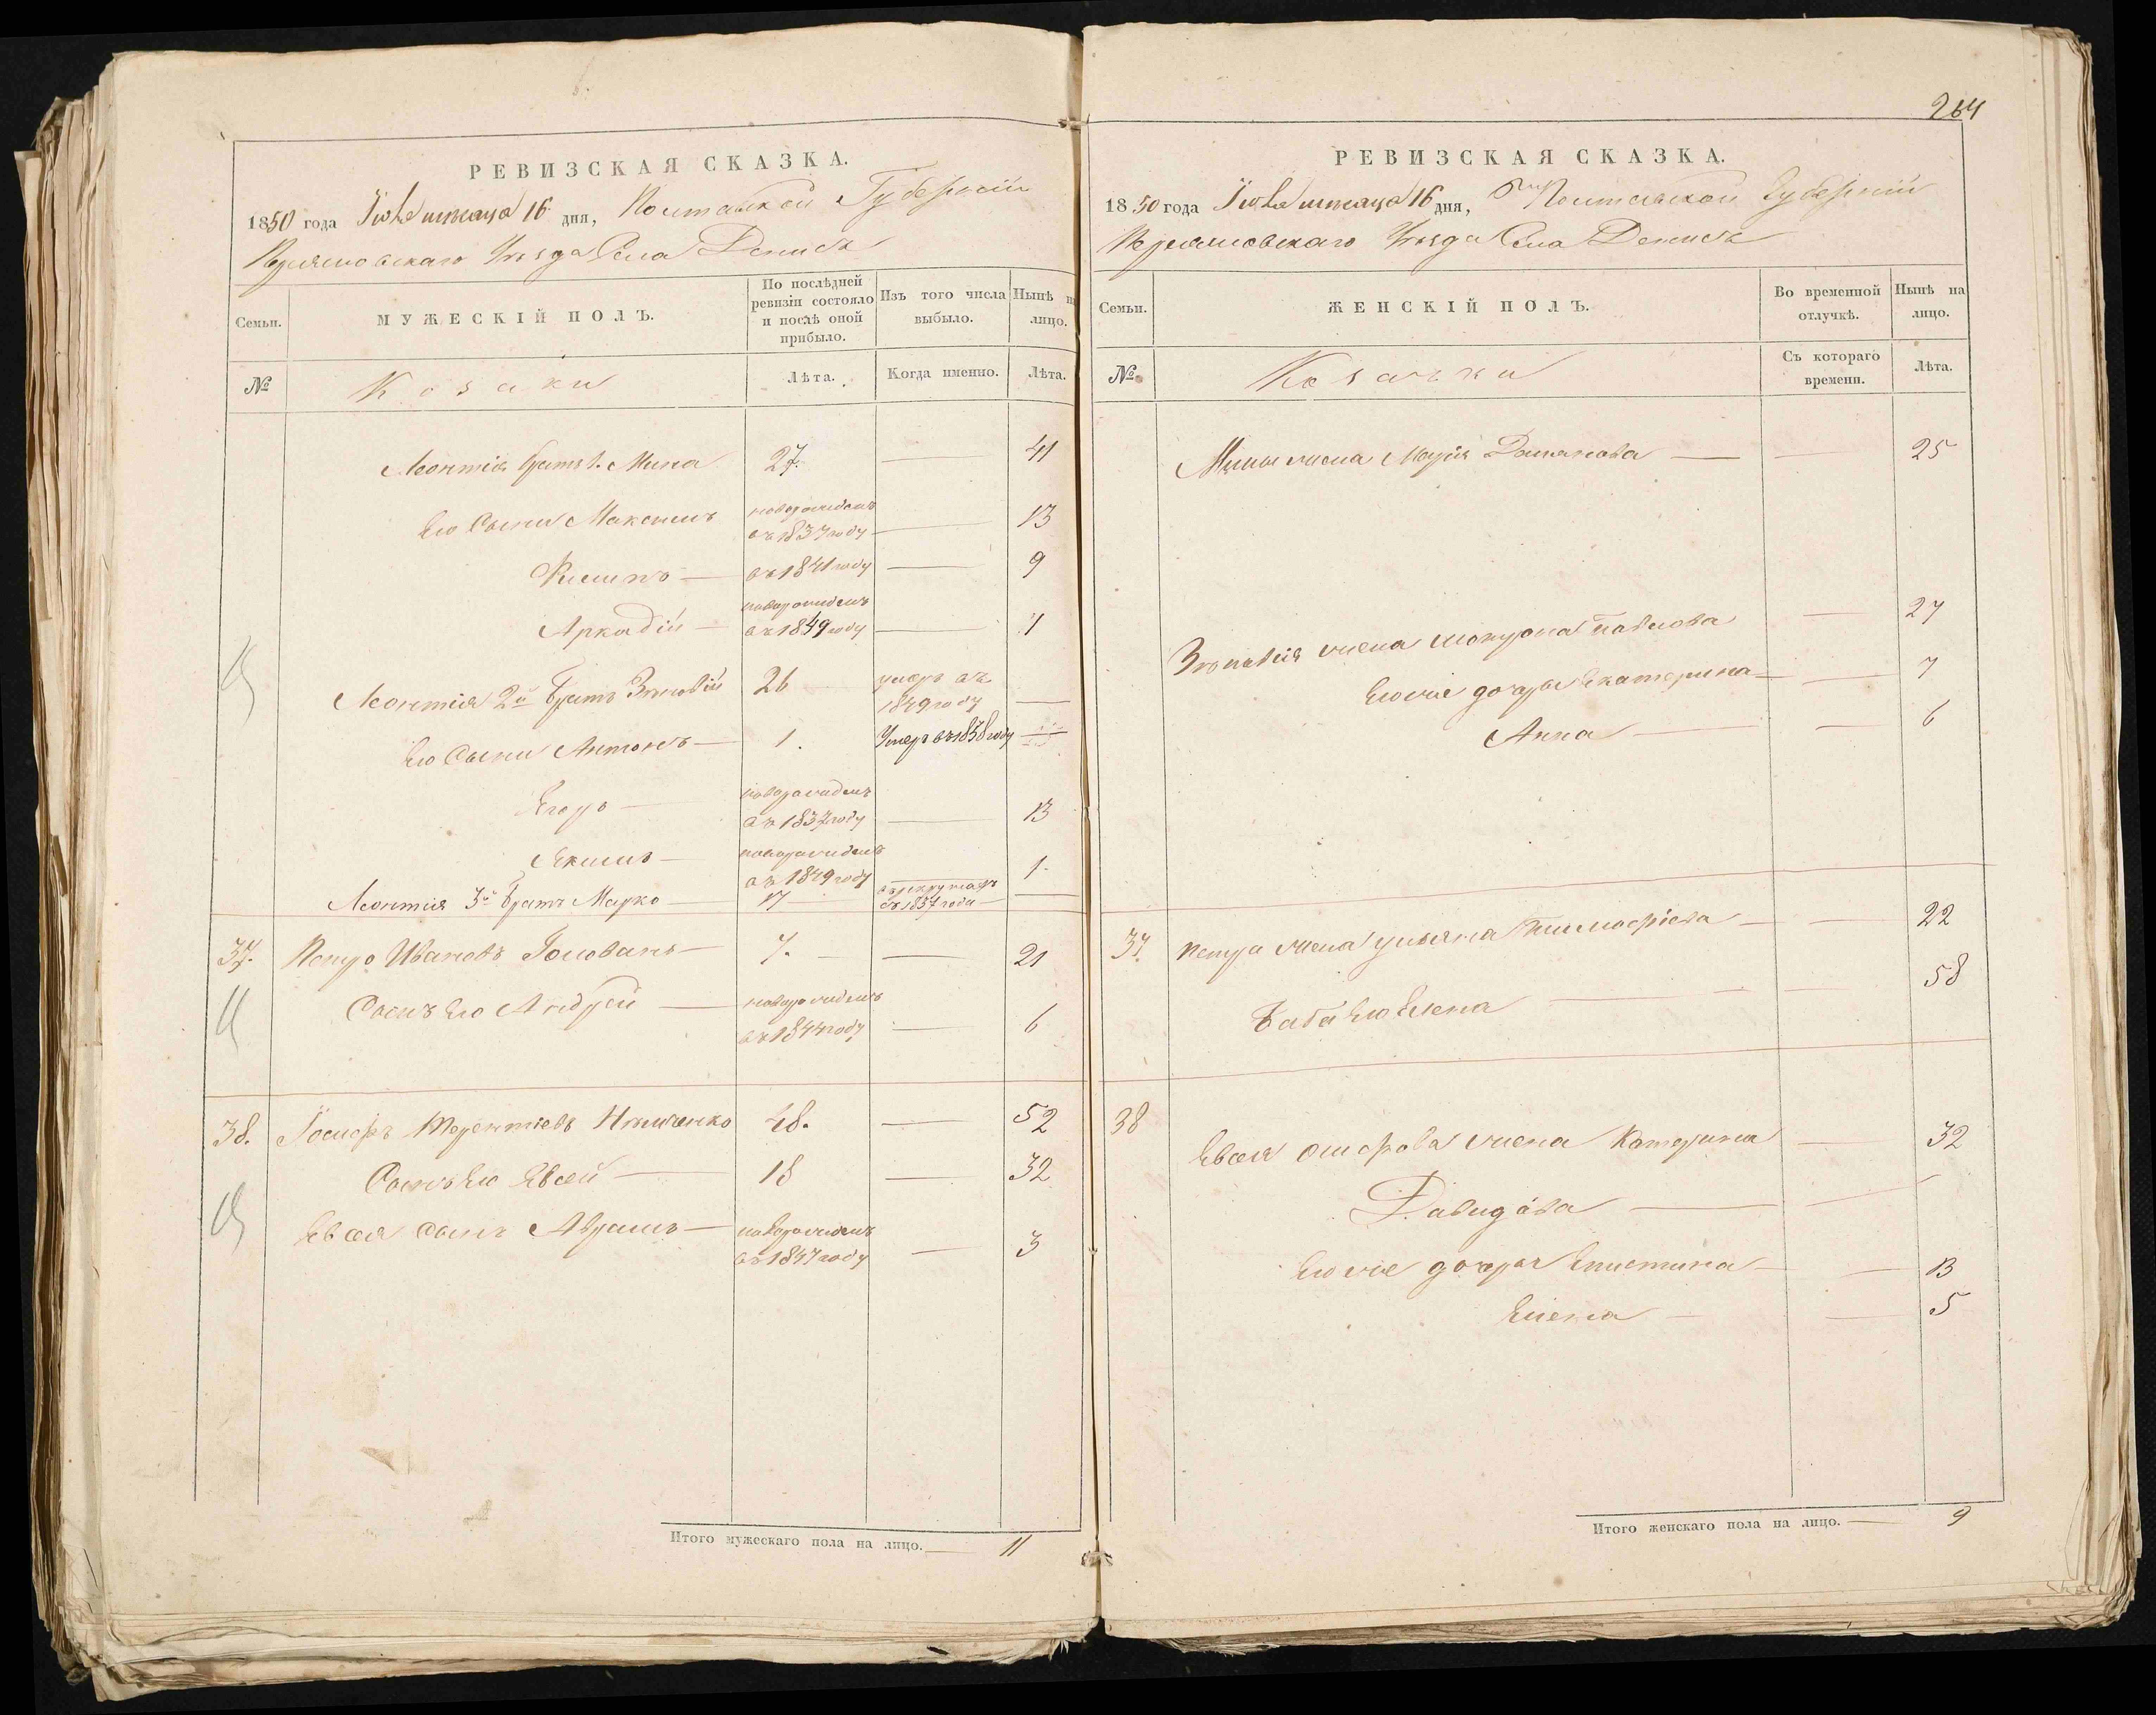 РЕВИЗСКАЯ СКАЗКА.
1850 года Іюля месяца 16 дня, Полтавской Губерніи
Переяславскаго Уезда Села Денисъ
Семьи.
МУЖЕСКІЙ ПОЛЪ.
По послѣдней ревизіи состояло и послѣ оной прибыло.
Изъ того числа выбыло.
Нынѣ на лицо.
№
Козаки
Лѣта.
Когда именно.
Лѣта.
Леонтія братъ 1. Мина 27. — 41
Его Сыни Максимъ — новорожденъ въ 1837 году — 13
Филипъ — въ 1841 году — 9
Аркадій — новорожденъ въ 1849 году — 1
Леонтія 2й братъ Зѣновій 26 умеръ въ 1849 году —
Его Сыни Антонъ — 1. Умеръ въ 1838 году —
Егоръ — новорожденъ въ 1837 году — 13
Якимъ — новорожденъ въ 1849 году — 1.
Леонтія 3й братъ Марко — 17 въ рекрутахъ съ 1837 года —
37. Петро Ивановъ Головань — 7. — 21
Сынъ Его Андрей — новорожденъ въ 1844 году — 6
38. Іосифъ Терентіевъ Нѣмченко 48. — 52
Сынъ Его Явсей — 18 — 32
Евсея Сынъ Абрамъ — новорожденъ въ 1847 году — 3
Итого мужескаго пола на лицо. — 11
264
РЕВИЗСКАЯ СКАЗКА.
1850 года Іюля месяца 16 дня, Полтавской Губерніи
Переяславскаго Уезда Села Денисъ
Семьи.
ЖЕНСКІЙ ПОЛЪ.
Во временной отлучкѣ.
Нынѣ на лицо.
№
Козачки
Съ котораго времени.
Лѣта.
Мины жена Марія — — 25
Зѣновія жена Павлова — 27
Его же дочери Екатерина — — 7
Анна — — 6
37. Петра жена Ульяна Тимофіева — — 22
Баба Его Елена — — 58
38 Евсея жена Катерина — 32
Давидова — —
Его же дочери Епистина — — 13
Елена — — 5
Итого женскаго пола на лицо. — 9